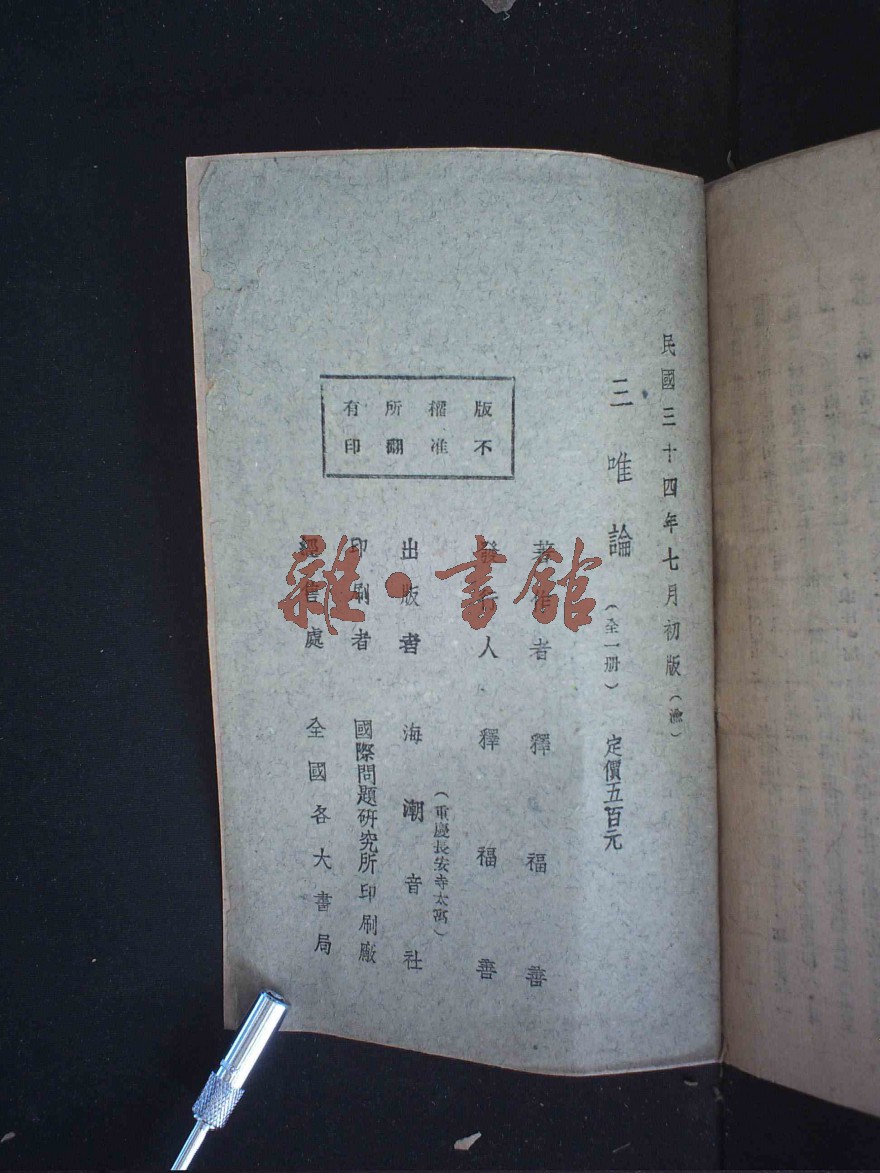 民國三十四年七月初版（渝）
三唯論（全一册） 定價五百元
著作者 釋福善
發行人 釋福善
（重慶長安寺太寓）
出版者 海潮音社
印刷者 國際問題研究所印刷廠
經售處 全國各大書局
版權所有
不准翻印
雜·書館